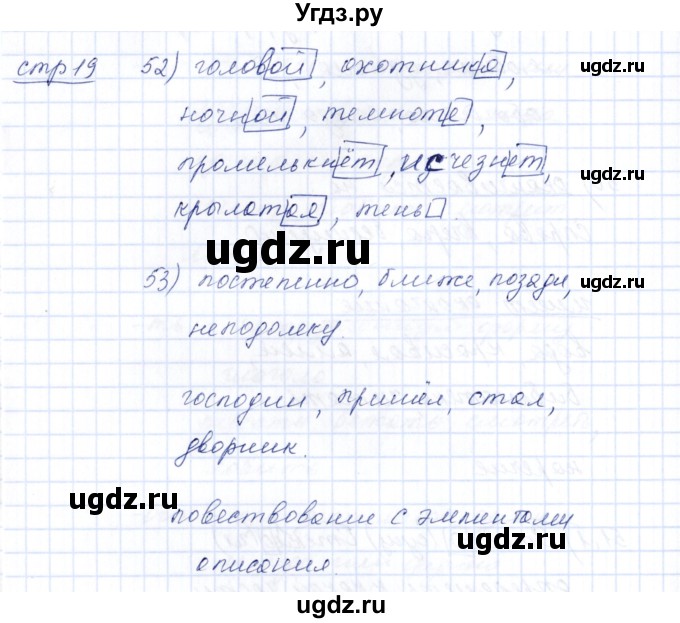 Угдз.ру
стр 19 52) головой, охотника, ugdz.ru
ночной, темноте, ugdz.ru
промелькнёт, исчезнет, ugdz.ru
крылатая, тень.
ugdz.ru
53) постепенно, ближе, позади, ugdz.ru
неподолеку.
господин, пришёл, стал,
дворник.
ugdz.ru
повествование с элементами
ugdz.ru
описания.
ugdz.ru